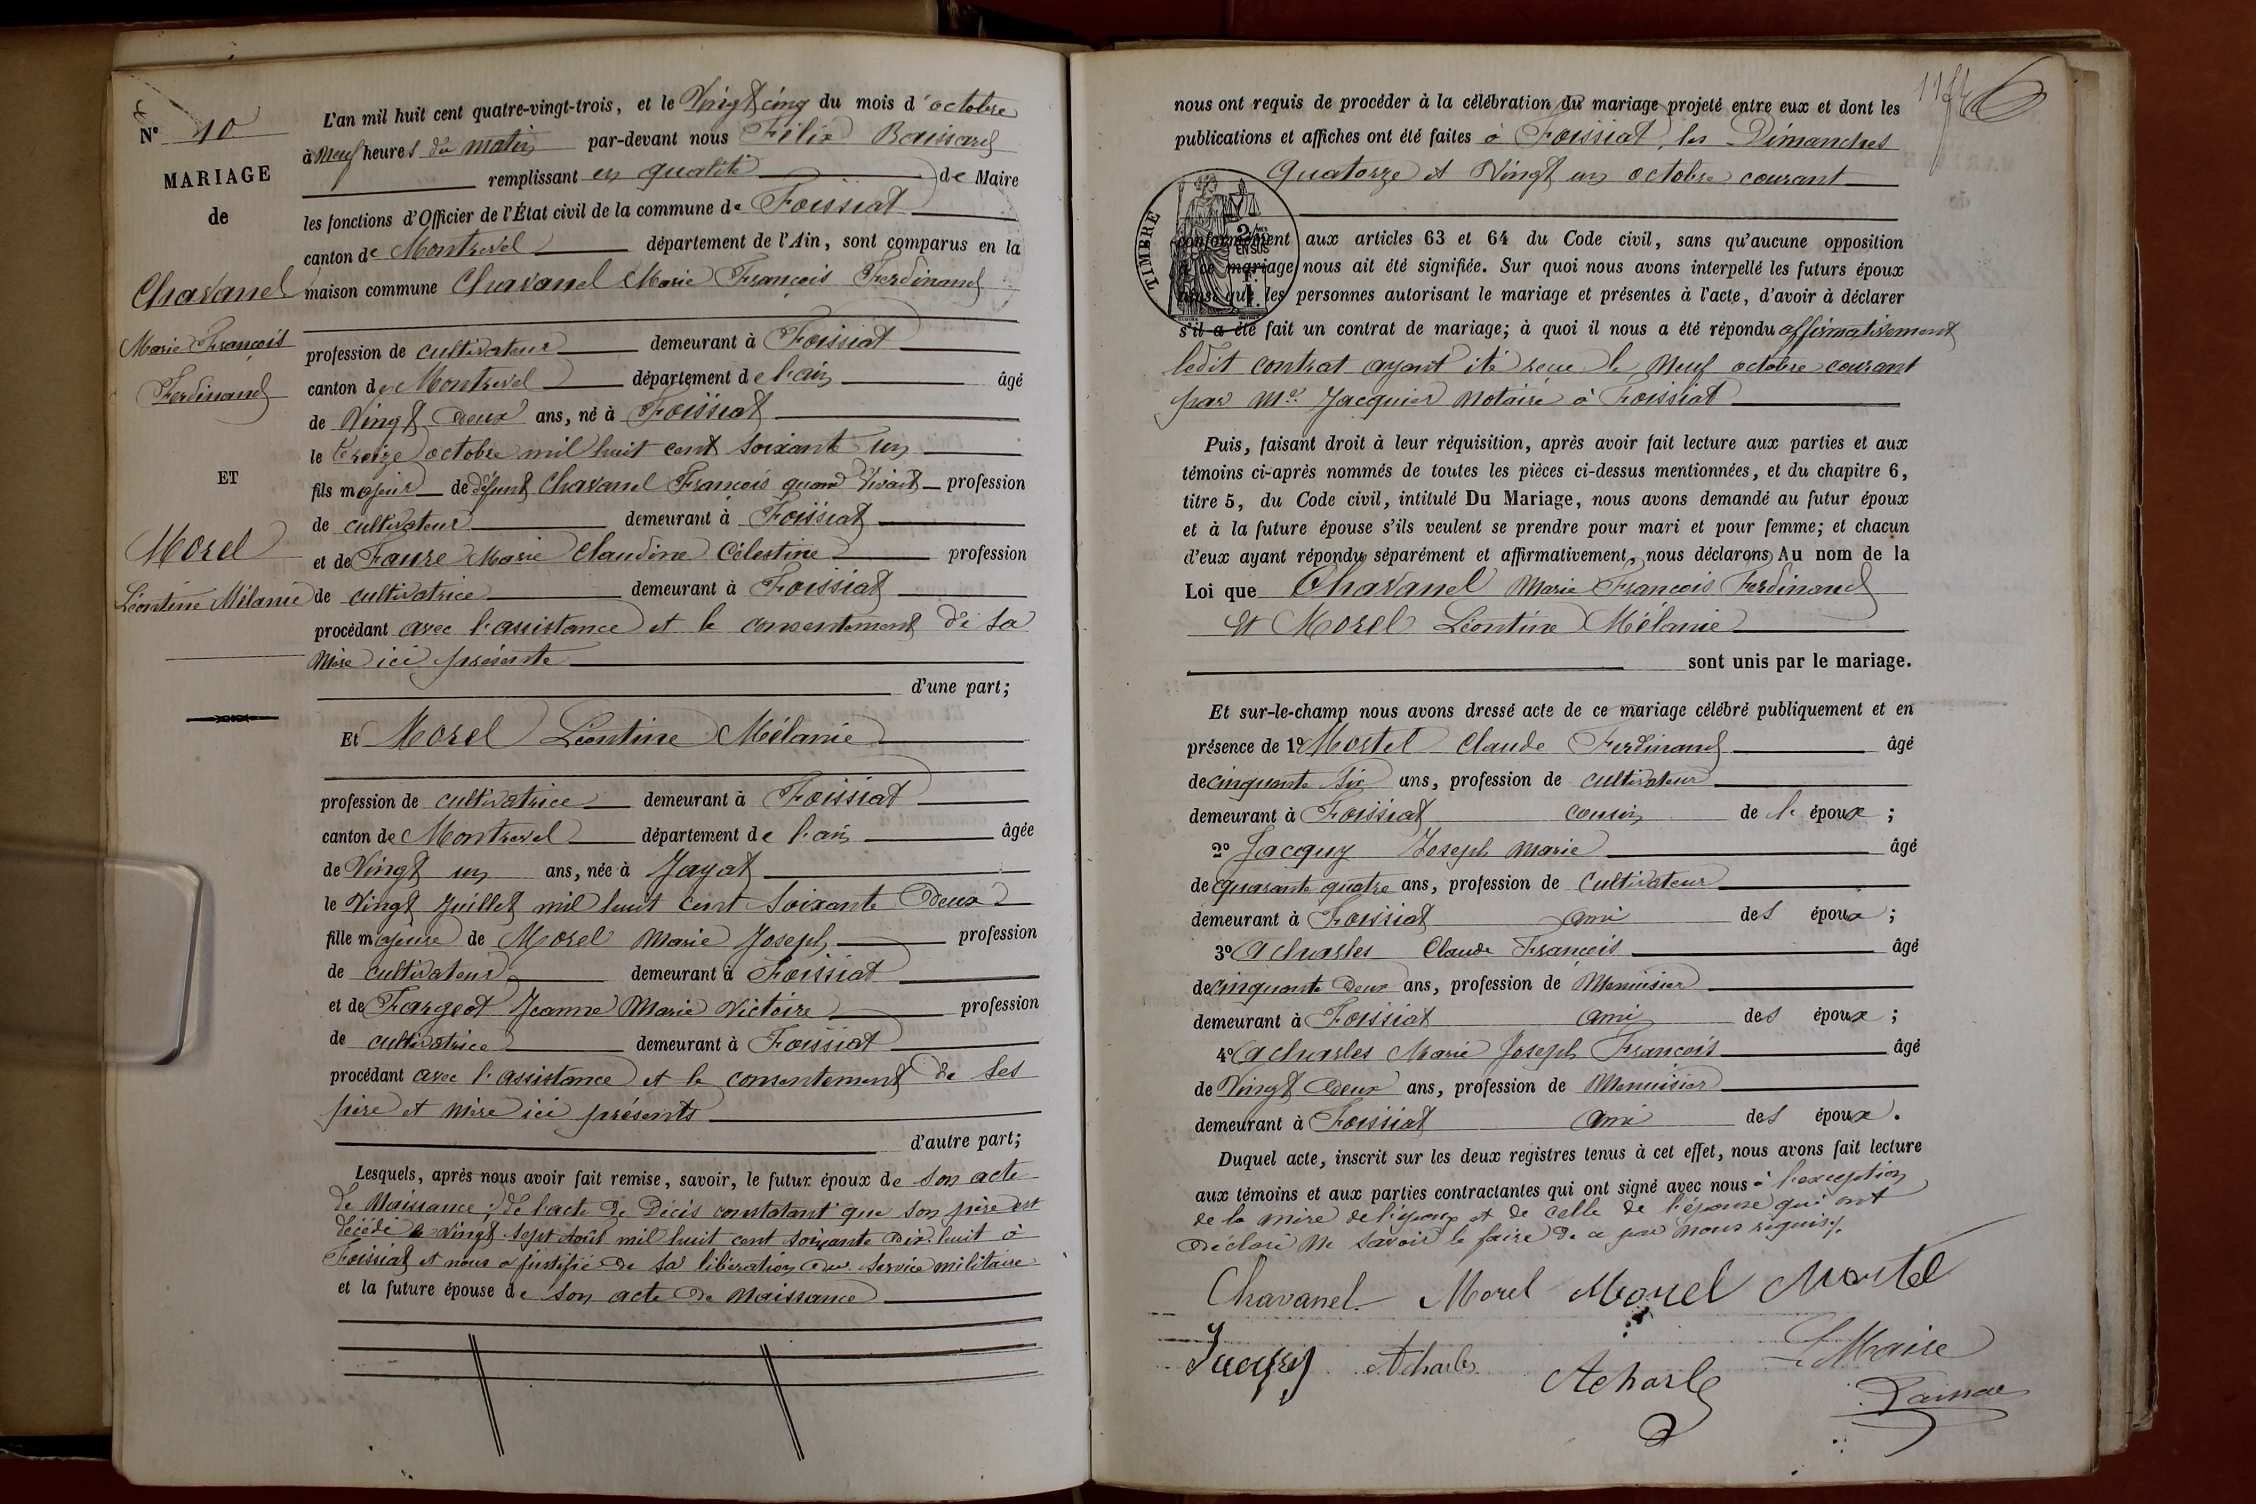 N° 10
MARIAGE
de
Chavanel
Marie François
Ferdinand
ET
Morel
Léontine Mélanie
L'an mil huit cent quatre-vingt-trois, et le Vingt cinq du mois d'octobre
à Neuf heures du matin par-devant nous Félix
remplissant en qualité de Maire
les fonctions d'Officier de l'État civil de la commune de Foissiat
canton de Montrevel département de l'Ain, sont comparus en la
maison commune Chavanel Marie François Ferdinand
profession de cultivateur demeurant à Foissiat
canton de Montrevel département de l'ain âgé
de Vingt deux ans, né à Foissiat
le treize octobre mil huit cent soixante un
fils majeur de défunt Chavanel François quand vivait profession
de cultivateur demeurant à Foissiat
et de Faure Marie Claudine Célestine profession
de cultivatrice demeurant à Foissiat
procédant avec l'assistance et le consentement de sa
Mère ici présente
d'une part;
Et Morel Léontine Mélanie
profession de cultivatrice demeurant à Foissiat
canton de Montrevel département de l'ain âgée
de Vingt un ans, née à Jayat
le Vingt Juillet mil huit cent soixante deux
fille majeure de Morel Marie Joseph profession
de cultivateur demeurant à Foissiat
et de Fargeot Jeanne Marie Victoire profession
de cultivatrice demeurant à Foissiat
procédant avec l'assistance et le consentement de ses
père et mère ici présents
d'autre part;
Lesquels, après nous avoir fait remise, savoir, le futur époux de son acte
de Naissance; de l'acte de Décès constatant que son père est
décédé le vingt sept août mil huit cent soixante dix-huit à
Foissiat et nous a justifié de sa libération du service militaire
et la future épouse de son acte de Naissance
nous ont requis de procéder à la célébration du mariage projeté entre eux et dont les
publications et affiches ont été faites à Foissiat, les Dimanches
Quatorze et Vingt un octobre courant
TIMBRE
2/10 EN SUS
conformément aux articles 63 et 64 du Code civil, sans qu'aucune opposition
à ce mariage nous ait été signifiée. Sur quoi nous avons interpellé les futurs époux
ainsi que les personnes autorisant le mariage et présentes à l'acte, d'avoir à déclarer
s'il a été fait un contrat de mariage; à quoi il nous a été répondu affirmativement
ledit contrat ayant été recue le Neuf octobre courant
par Me Jacquier Notaire à Foissiat
Puis, faisant droit à leur réquisition, après avoir fait lecture aux parties et aux
témoins ci-après nommés de toutes les pièces ci-dessus mentionnées, et du chapitre 6,
titre 5, du Code civil, intitulé Du Mariage, nous avons demandé au futur époux
et à la future épouse s'ils veulent se prendre pour mari et pour femme; et chacun
d'eux ayant répondu séparément et affirmativement, nous déclarons Au nom de la
Loi que Chavanel Marie François Ferdinand
et Morel Léontine Mélanie
sont unis par le mariage.
Et sur-le-champ nous avons dressé acte de ce mariage célébré publiquement et en
présence de 1° Mortel Claude Ferdinand âgé
de cinquante six ans, profession de cultivateur
demeurant à Foissiat cousin de l'époux;
2° Jacquy Joseph Marie âgé
de quarante quatre ans, profession de Cultivateur
demeurant à Foissiat ami des époux;
3° Acharles Claude François âgé
de cinquante deux ans, profession de Menuisier
demeurant à Foissiat ami des époux;
4° Acharles Marie Joseph François âgé
de Vingt deux ans, profession de Menuisier
demeurant à Foissiat ami des époux.
Duquel acte, inscrit sur les deux registres tenus à cet effet, nous avons fait lecture
aux témoins et aux parties contractantes qui ont signé avec nous à l'exception
de la mère de l'époux et de celle de l'épouse qui ont
déclaré ne savoir le faire de ce par nous requis.
Chavanel Morel Morel Mortel
Jacquy Acharles Acharle
Le Maire